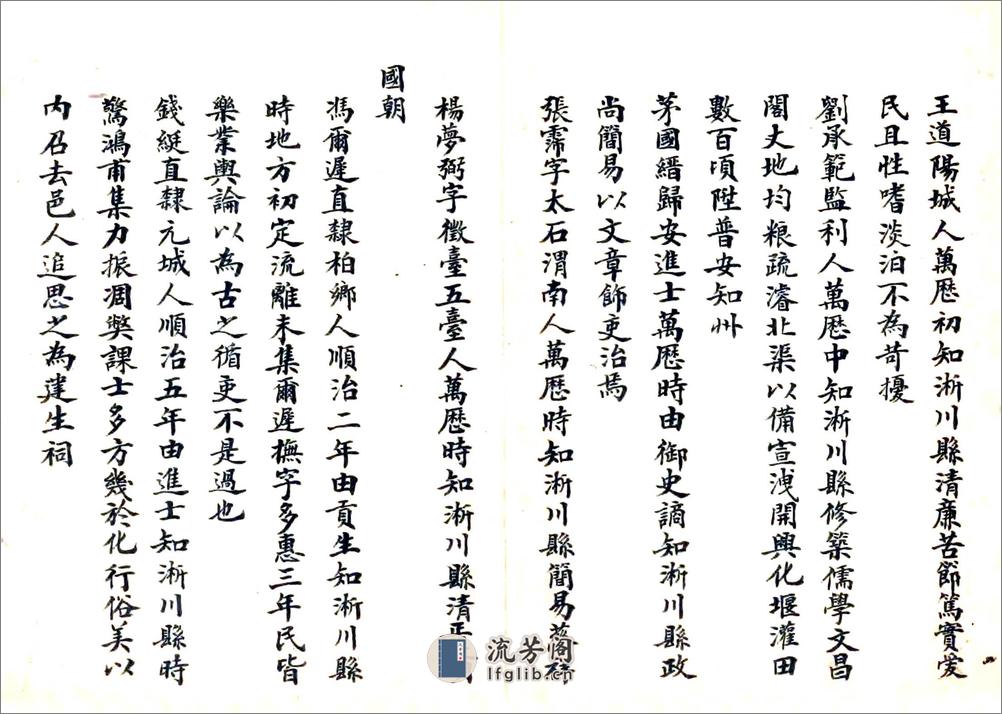 王道陽城人萬歷初知淅川縣清廉苦節篤實愛
民且性嗜淡泊不為苛擾
劉承範監利人萬歷中知淅川縣修築儒學文昌
閣丈地均粮疏濬北渠以備宣洩開興化堰灌田
數百頃陞普安知州
茅國縉歸安進士萬歷時由御史謫知淅川縣政
尚簡易以文章飾吏治焉
張霈字太石渭南人萬歷時知淅川縣簡易
楊夢弼字徵臺五臺人萬歷時知淅川縣清
國朝
馮爾遲直隸柏鄉人順治二年由貢生知淅川縣
時地方初定流離未集爾遲撫字多惠三年民皆
樂業輿論以為古之循吏不是過也
錢綎直隸元城人順治五年由進士知淅川縣時
驚鴻甫集力振凋獘課士多方幾於化行俗美以
內召去邑人追思之為建生祠
流芳阁
lfglib.com